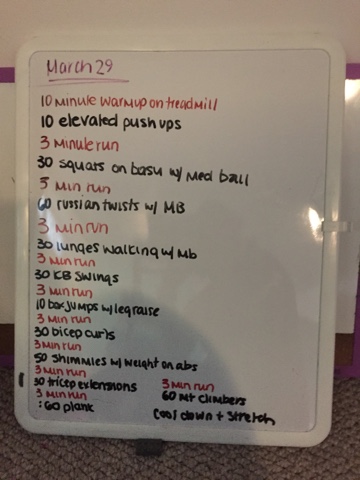 March 29
10 minute warmup on treadmill
10 elevated push ups
3 minute run
30 squats on basu w/ Med ball
3 Min run
60 russian twists w/ MB
3 min run
30 lunges walking w/ mb
3 min run
30 KB swings
3 Min run
10 box jumps w/ leg raise
3 Min run
30 bicep curls
3 min run
50 shimmies w/ weight on abs
3 min run
30 tricep extensions
3 Min run
:60 plank
3 min run
60 Mt climbers
Cool down + Stretch